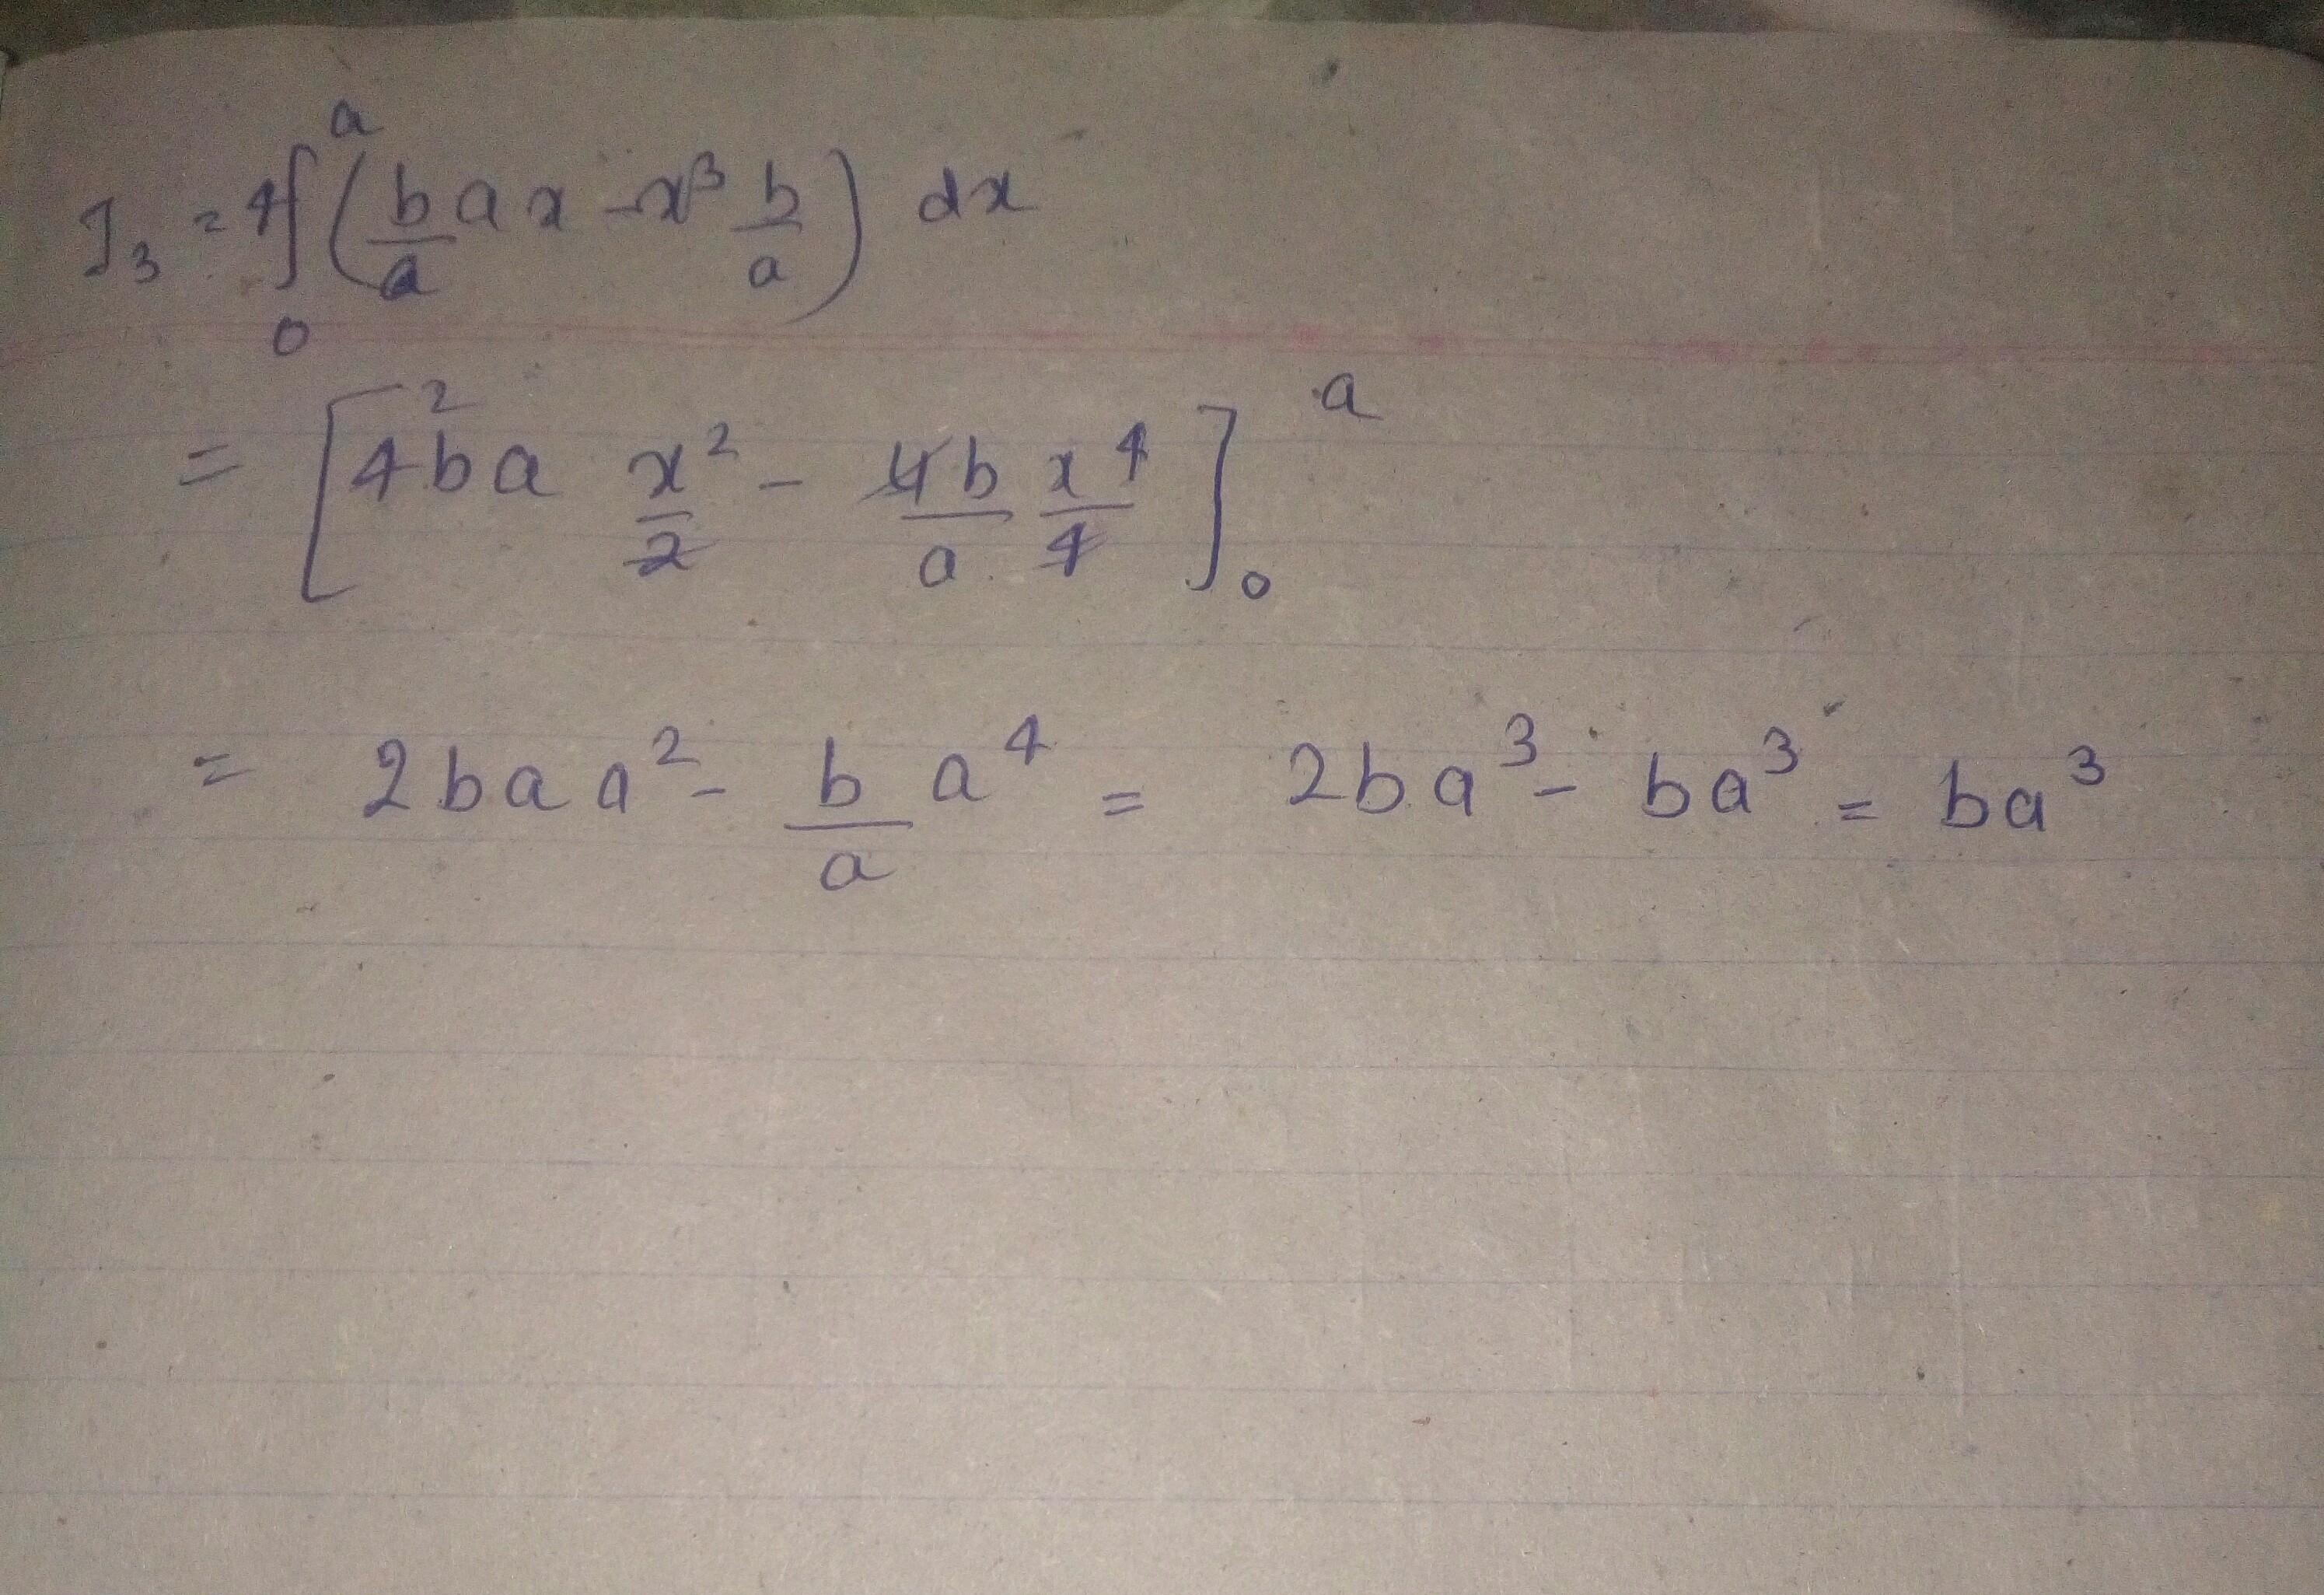 I₃ = 4∫₀ᵃ (b/a ax - x³ b/a) dx
= [4²ba x²/2 - 4b/a x⁴/4]₀ᵃ
= 2baa² - b/a a⁴ = 2ba³ - ba³ = ba³